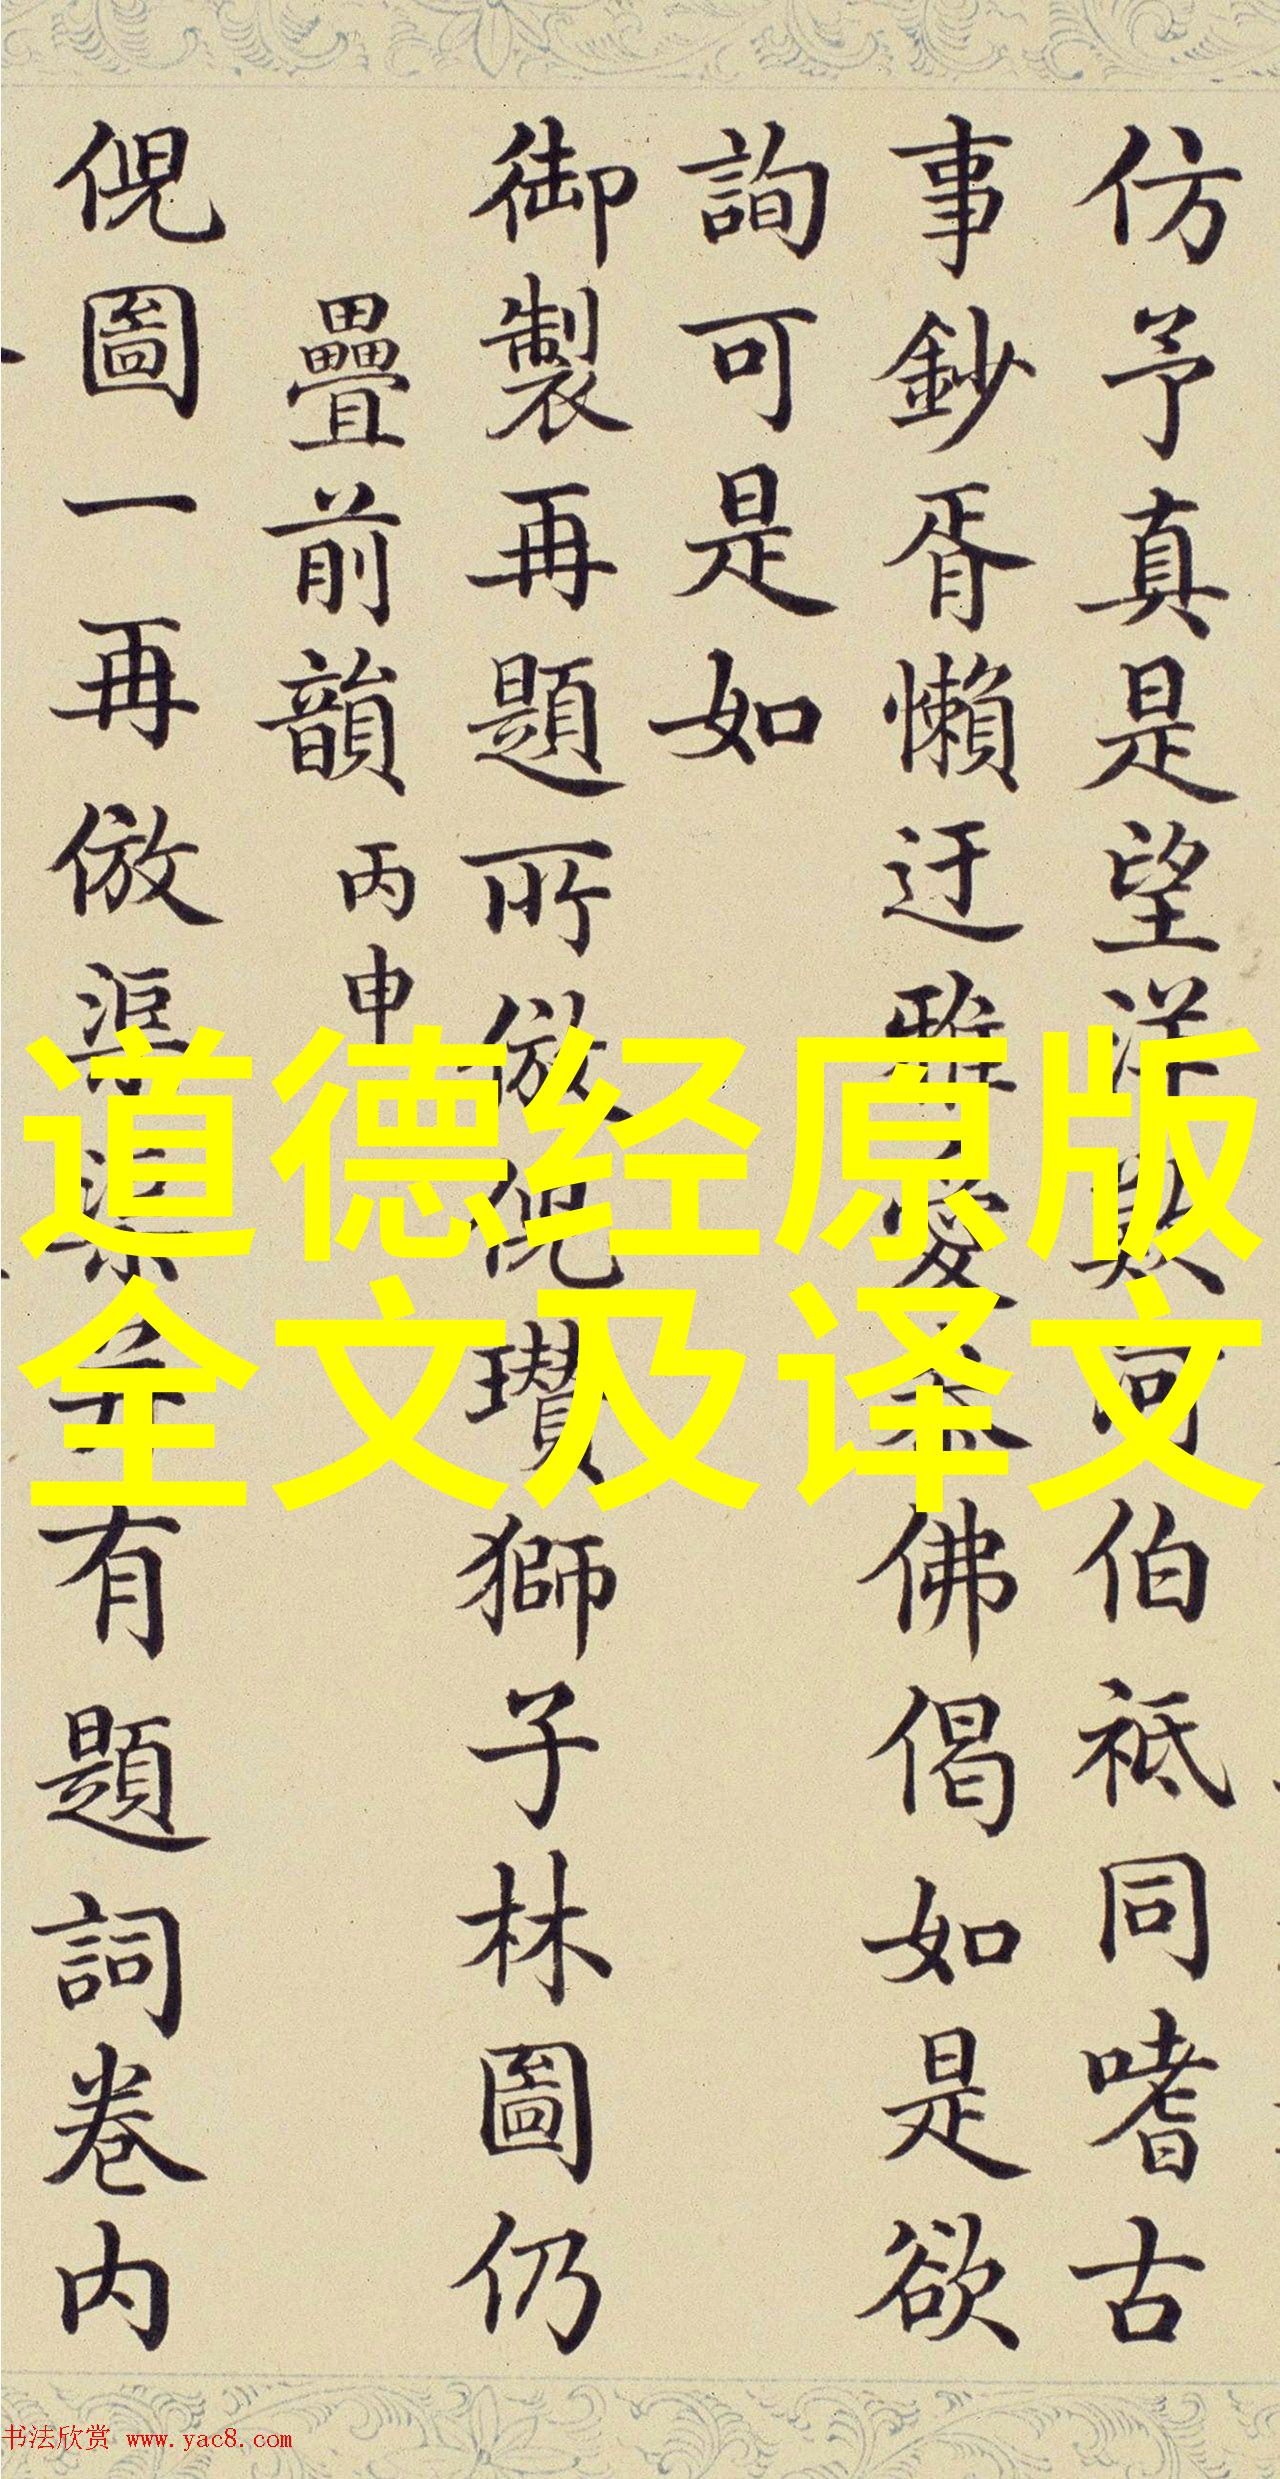 仿予真是望洋類河伯祗同嗜古
事鈔胥懶迂雅愛泰佛偈如是欲
詢可是如
御製再題所倣倪瓚獅子林圖仍
疊前韻 丙申
倪圖一再倣渠渠並有題詞卷内
道德经原版
全文及译文
书法欣赏 www.yac8.com